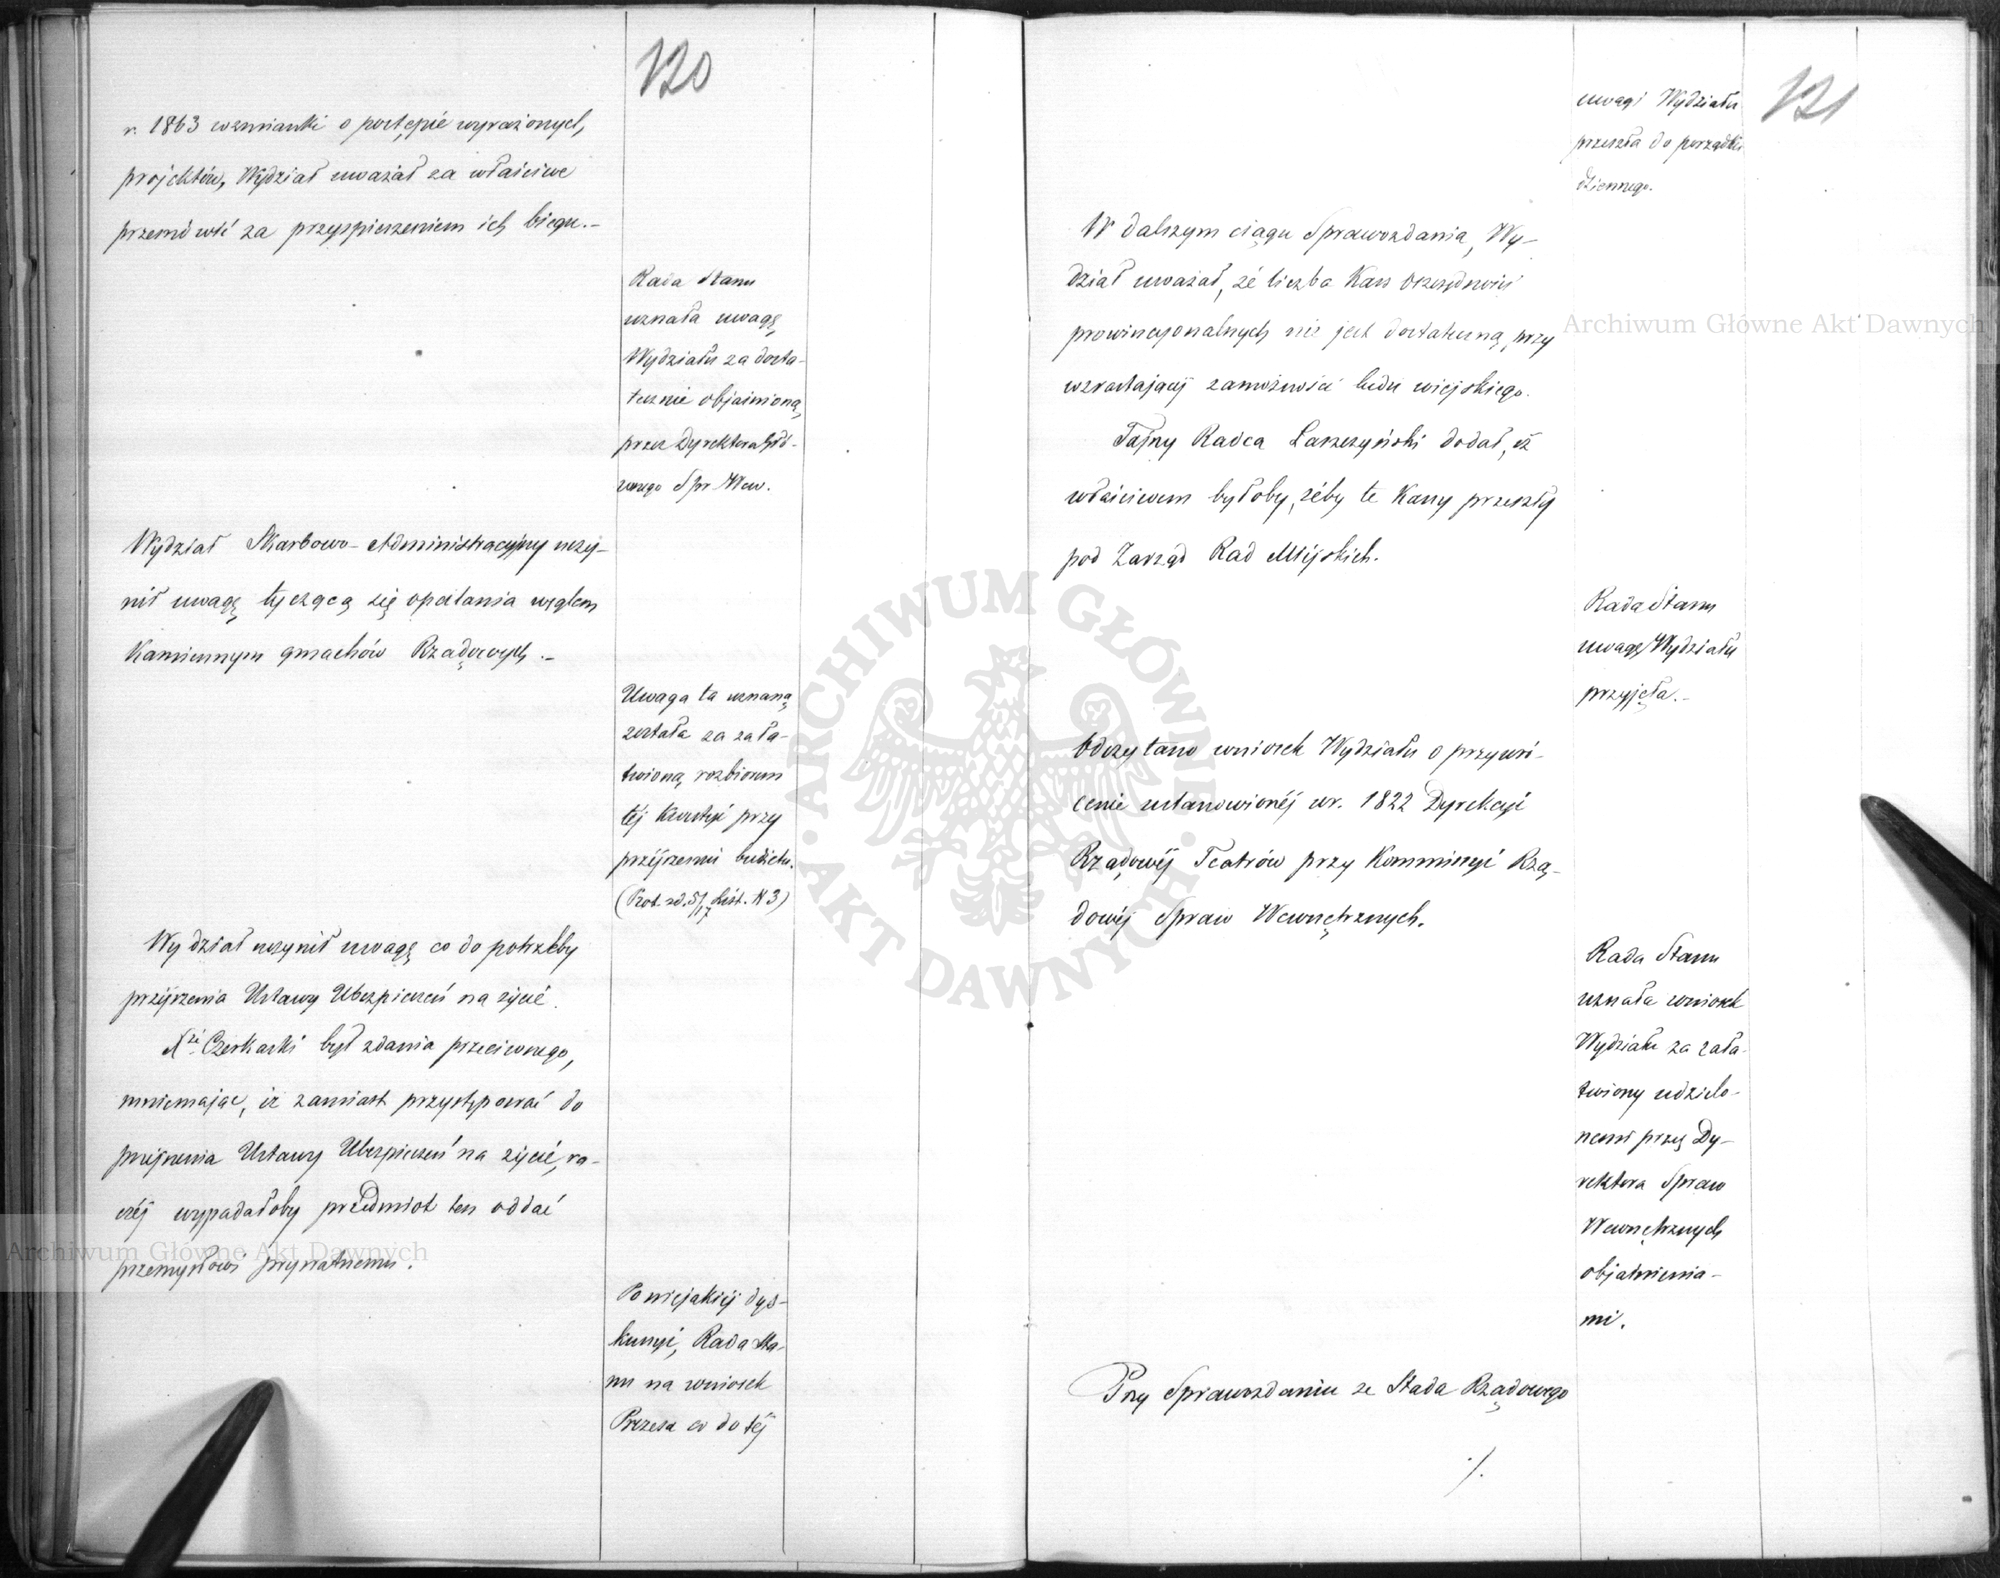 120
r. 1863 wzmianki o postępie wyrażonych
projektów, Wydział uważał za właściwe
przemówić za przyspieszeniem ich biegu.–
Rada Stanu
uznała uwagę
Wydziału za dosta-
tecznie objaśnioną
przez Dyrektora Głó-
wnego Spr. Wew.
Wydział Skarbowo-Administracyjny uczy-
nił uwagę tyczącą się opalania węglem
Kamiennym gmachów Rządowych.–
Uwaga ta uznaną
została za zała-
twioną rozbiorem
téj kwestyi przy
przejrzeniu budżetu.
(Prot. sd. 5/17 List. N 3)
Wydział uczynił uwagę co do potrzeby
przejrzenia Ustawy Ubezpieczeń na życie.
Czerkaski był zdania przeciwnego,
mniemając, iż zamiast przystępować do
przejrzenia Ustawy Ubezpieczeń na życie, ra-
czéj wypadałoby przedmiot ten oddać
przemysłowi prywatnemu.
Po niejakiéj dys-
kussyi, Rada Sta-
nu na wniosek
Prezesa co do téj
121
uwagi Wydziału
przeszła do porządku
dziennego.
W dalszym ciągu Sprawozdania, Wy-
dział uważał, że liczba Kass oszczędności
prowincyonalnych nie jest dostateczną, przy
wzrastającéj zamożności ludu wiejskiego.
Tajny Radca Łaszczyński dodał, iż
właściwem byłoby, żéby te Kassy przeszły
pod Zarząd Rad Miejskich.
Rada Stanu
uwagę Wydziału
przyjęła.–
Odczytano wniosek Wydziału o przywró-
cenie ustanowionéj w r. 1822 Dyrekcyi
Rządowéj Teatrów przy Kommissyi Rzą-
dowéj Spraw Wewnętrznych.
Rada Stanu
uznała wniosek
Wydziału za zała-
twiony udzielo-
nemi przez Dy-
rektora Spraw
Wewnętrznych
objaśnienia-
mi.
Przy Sprawozdaniu ze Stada Rządowego
./.
Archiwum Główne Akt Dawnych
Archiwum Główne Akt Dawnych
ARCHIWUM GŁÓWNE
AKT DAWNYCH